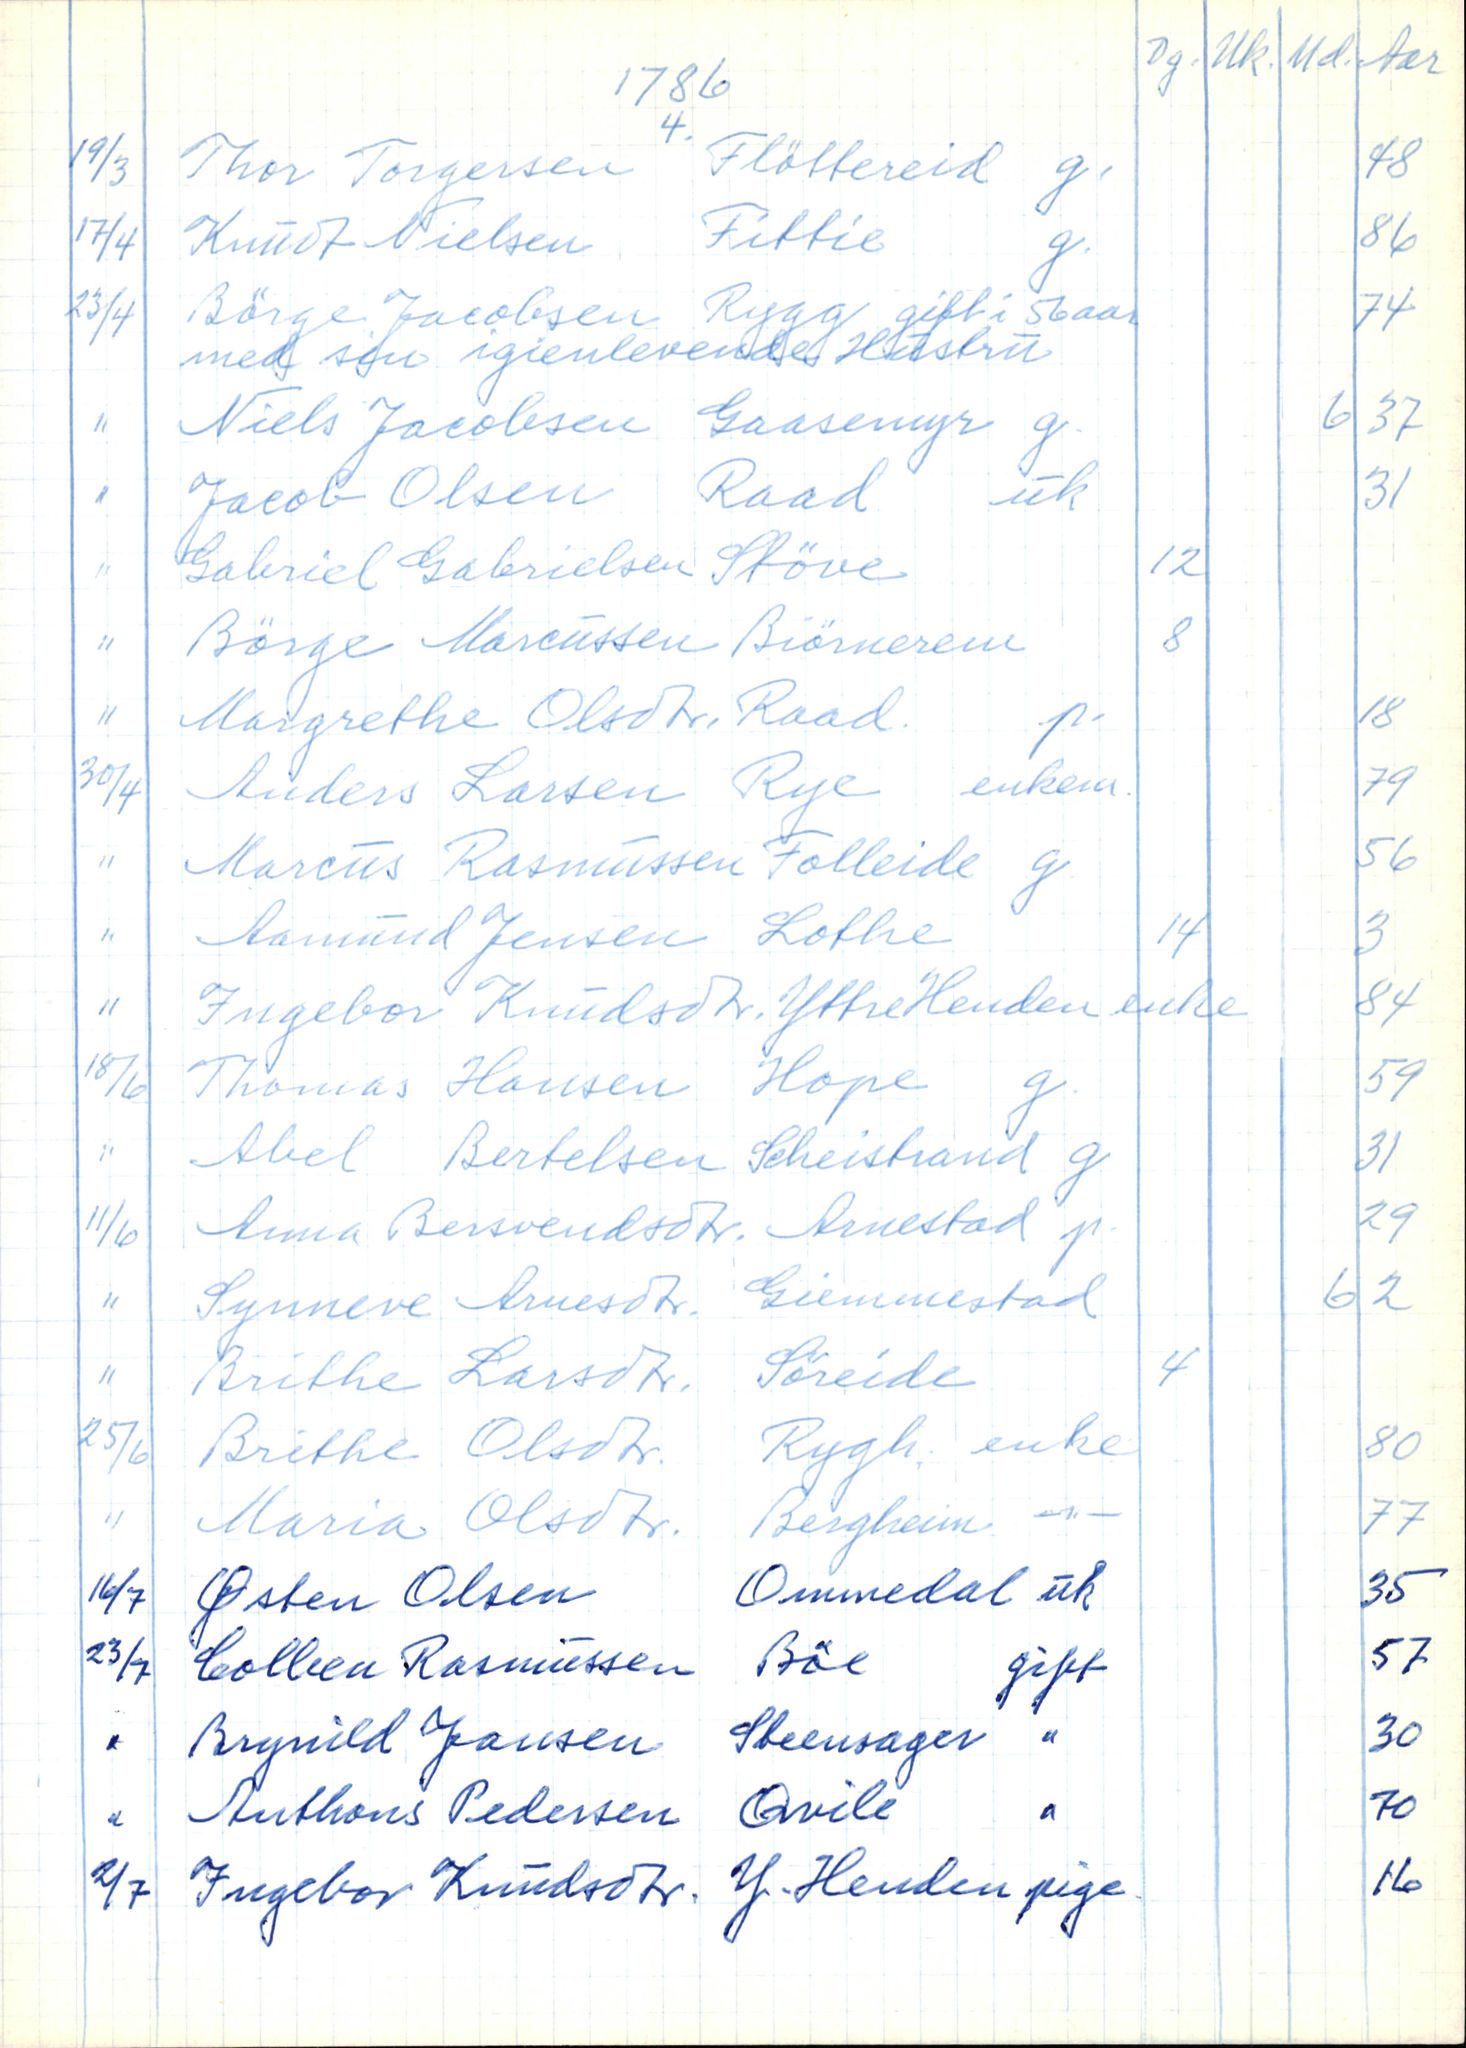 Dg. Uk. Md. Aar
1786
4.
19/3 Thor Torgersen Flöttereid g. 48
17/4 Knudt Nielsen Fittie g. 86
23/4 Börge Jacobsen Rygg gift i 56 aar 74
med sin igienlevende Hustru
" Niels Jacobsen Gaasemyr g. 6 37
" Jacob Olsen Raad uk 31
" Gabriel Gabrielsen Støve 12
" Börge Marcussen Biörnerem 8
" Margrethe Olsdtr. Raad. p. 18
30/4 Anders Larsen Rye enkem. 79
" Marcus Rasmussen Folleide g 56
" Aamund Jensen Lothe 14 3
" Ingebor Knudsdtr. Yttre Henden enke 84
18/6 Thomas Hansen Hope g. 59
" Abel Bertelsen Scheistrand g 31
11/6 Anna Bersvendsdtr. Arnestad p. 29
" Synneve Arnesdtr. Giemmestad 6 2
" Brithe Larsdtr. Söreide 4
25/6 Brithe Olsdtr. Rygh. enke 80
" Maria Olsdtr. Bergheim —"— 77
16/7 Østen Olsen Ommedal uk 35
23/7 Colben Rasmussen Böe gift 57
" Brynild Jansen Steensager " 30
" Anthons Pedersen Qvile " 70
2/7 Ingebor Knudsdtr. Y. Henden pige 16